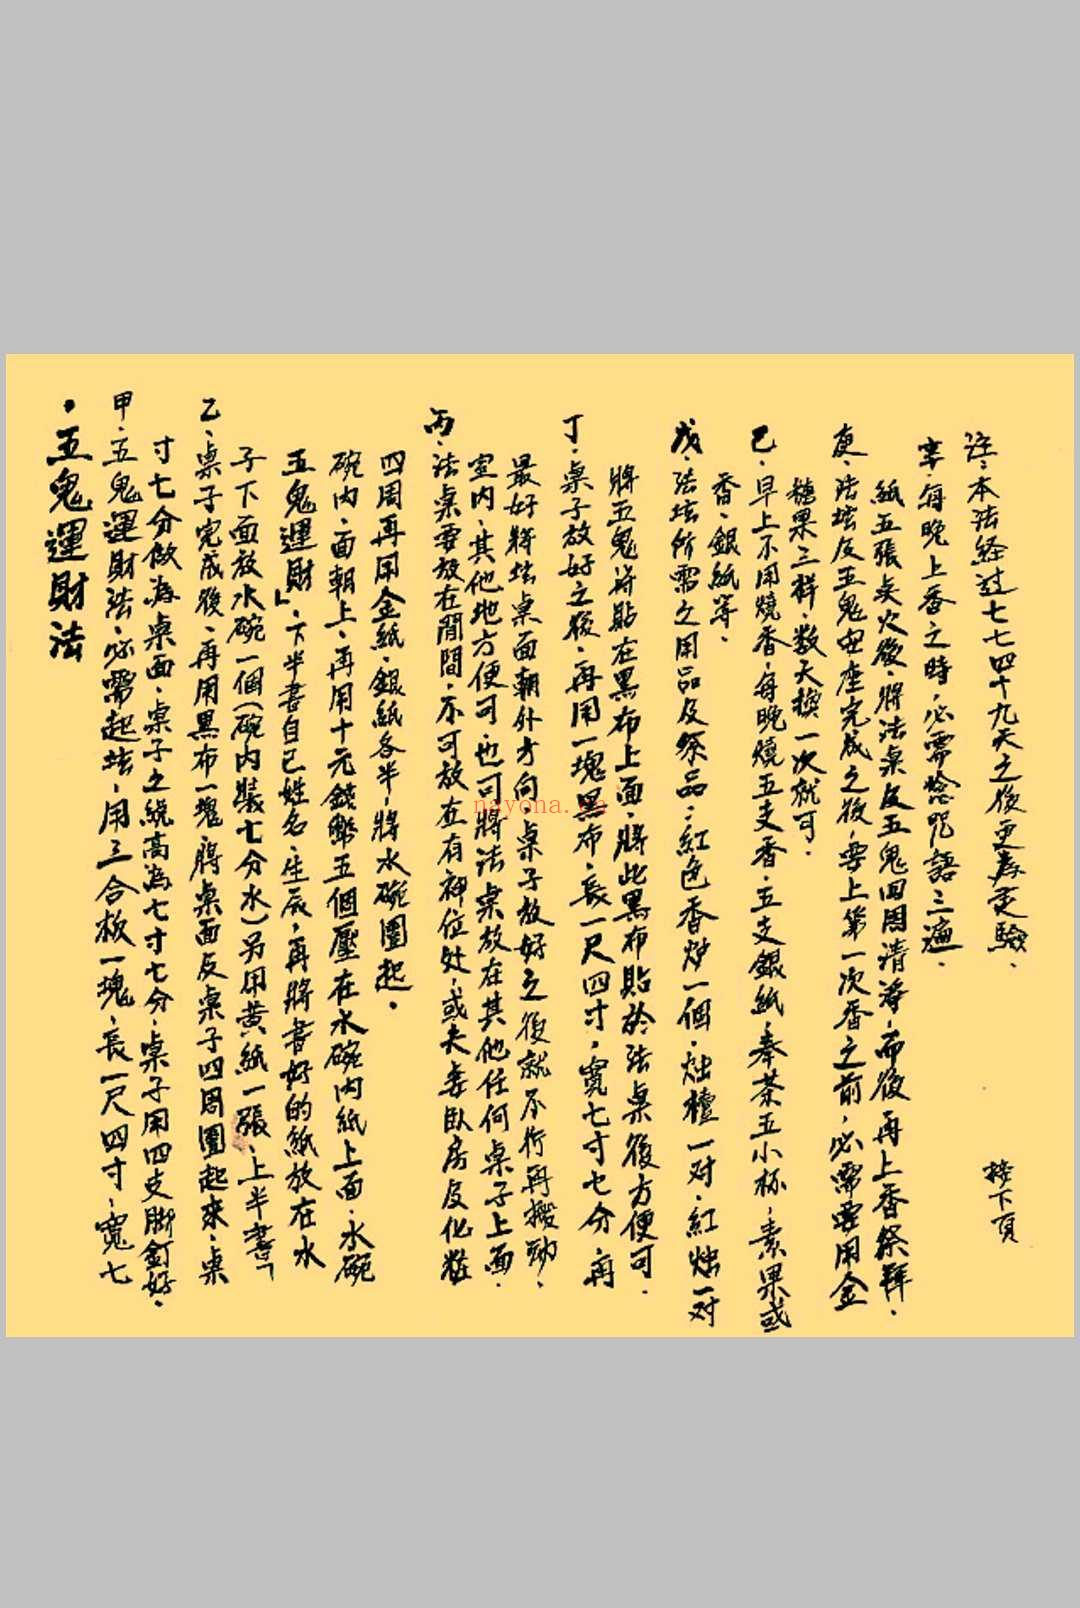 ·五鬼運財法
甲、五鬼運財法、必需起坛、用三合板一塊、長一尺四寸、寬七
寸七分做為桌面、桌子之總高為七寸七分、桌子用四支脚釘好.
乙、桌子完成後、再用黑布一塊、將桌面及桌子四周圍起來、桌
子下面放水碗一個(碗内裝七分水)另用黄紙一張、上半書「
五鬼運財」、下半書自己姓名、生辰、再將書好的紙放在水
碗内、面朝上、再用十元錢幣五個壓在水碗内紙上面、水碗
四周再用金紙、銀紙各半、將水碗圍起.
丙、法桌要放在閒間、不可放在有神位处、或夫妻臥房及化粧
室内、其他地方便可、也可將法桌放在其他任何桌子上面.
最好將坛桌面朝外方向、桌子放好之後就不行再搬動.
丁、桌子放好之後、再用一塊黑布、長一尺四寸、寬七寸七分、再
將五鬼符貼在黑布上面、將此黑布貼於法桌後方便可.
戊、法坛所需之用品及祭品:紅色香炉一個、烛檯一对、紅烛一对
香、銀紙等.
己、早上不用燒香、每晚燒五支香、五支銀紙、奉茶五小杯、素果或
糖果三样、数天換一次就可.
庚、法坛及五鬼安座完成之後、要上第一次香之前、必需要用金
紙五張点火後、將法桌及五鬼四周清淨、而後再上香祭拜.
辛、每晚上香之時、必需唸咒語三遍.
註、本法経过七七四十九天之後更為灵驗.
接下頁